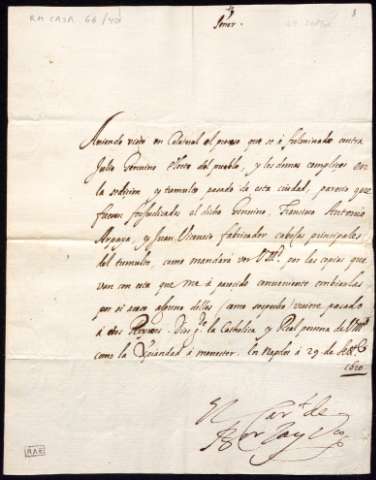 RM CAJA 66/40
3
Señor.
Auiendo visto en Colateral el proceso que se à fulminado contra
Julio Genuino electo del pueblo, y los demas complices en
la sedicion, y tumulto pasado de esta ciudad, parecio que
fuesen forjudicados el dicho Genuino, Francisco Antonio
Arpaya, y Juan Vicencio fabricador cabeſas principales
del tumulto, como mandarà ver V.Mᵈ. por las copias que
van con esta que me à parecido conueniente embiarlas,
por si acaso alguno dellos (como sospecho) vuiere pasado
à esos Reynos. Dios gᵈᵉ la Catholica y Real persona de V.Mᵈ
como la Xpiandad à menester. En Naples à 29 de
1620
El Carˡ de
Borja y
RAE